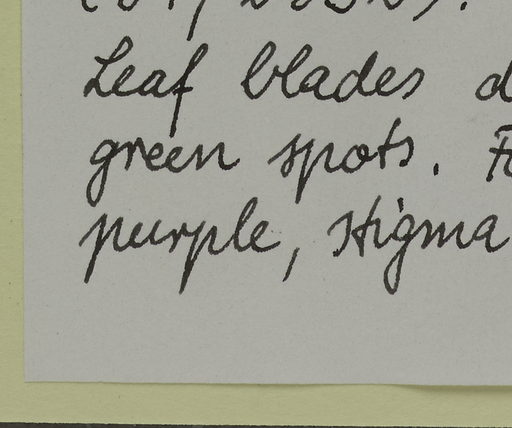 Leaf blades
green spots.
purple, stigma